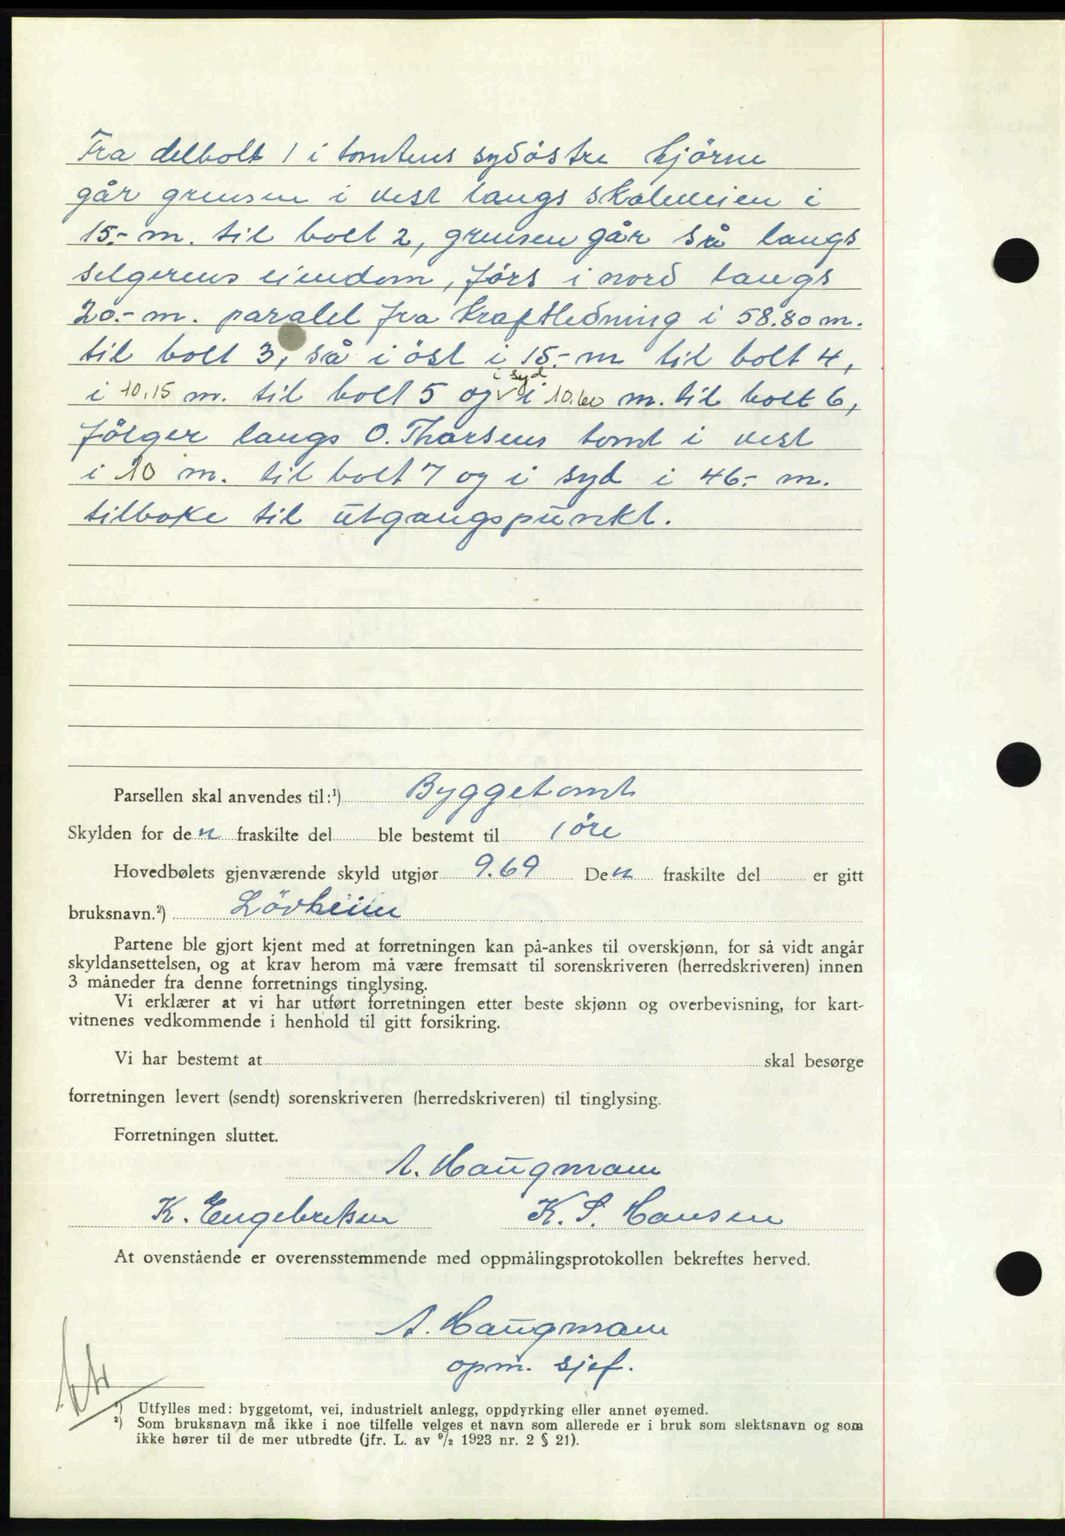 Fra delbolt 1 i tomtens sydöstre hjörne
går grensen i vest langs skoleveien i
15.- m. til bolt 2, grensen går så langs
selgerens eiendom, förs i nord langs
20.- m. paralel fra kraftledning i 58.80 m.
til bolt 3, så i öst i 15.- m til bolt 4,
i syd
i 10.15 m. til bolt 5 og √ i 10.60 m. til bolt 6,
fölger langs O. Thorsens tomt i vest
i 10 m. til bolt 7 og i syd i 46.- m.
tilbake til utgangspunkt.
Parsellen skal anvendes til:¹) Byggetomt
Skylden for den fraskilte del ble bestemt til 1 öre
Hovedbølets gjenværende skyld utgjør 9.69 Den fraskilte del er gitt
bruksnavn.²) Lövheim
Partene ble gjort kjent med at forretningen kan på-ankes til overskjønn, for så vidt angår
skyldansettelsen, og at krav herom må være fremsatt til sorenskriveren (herredskriveren) innen
3 måneder fra denne forretnings tinglysing.
Vi erklærer at vi har utført forretningen etter beste skjønn og overbevisning, for kart-
vitnenes vedkommende i henhold til gitt forsikring.
Vi har bestemt at skal besørge
forretningen levert (sendt) sorenskriveren (herredskriveren) til tinglysing.
Forretningen sluttet.
A. Haugmann
K. Engebretsen K. S. Hansen
At ovenstående er overensstemmende med oppmålingsprotokollen bekreftes herved.
A. Haugmann
opm. sjef.
¹) Utfylles med: byggetomt, vei, industrielt anlegg, oppdyrking eller annet øyemed.
²) Som bruksnavn må ikke i noe tilfelle velges et navn som allerede er i bruk som slektsnavn og som
ikke hører til de mer utbredte (jfr. L. av ⁹/₂ 1923 nr. 2 § 21).